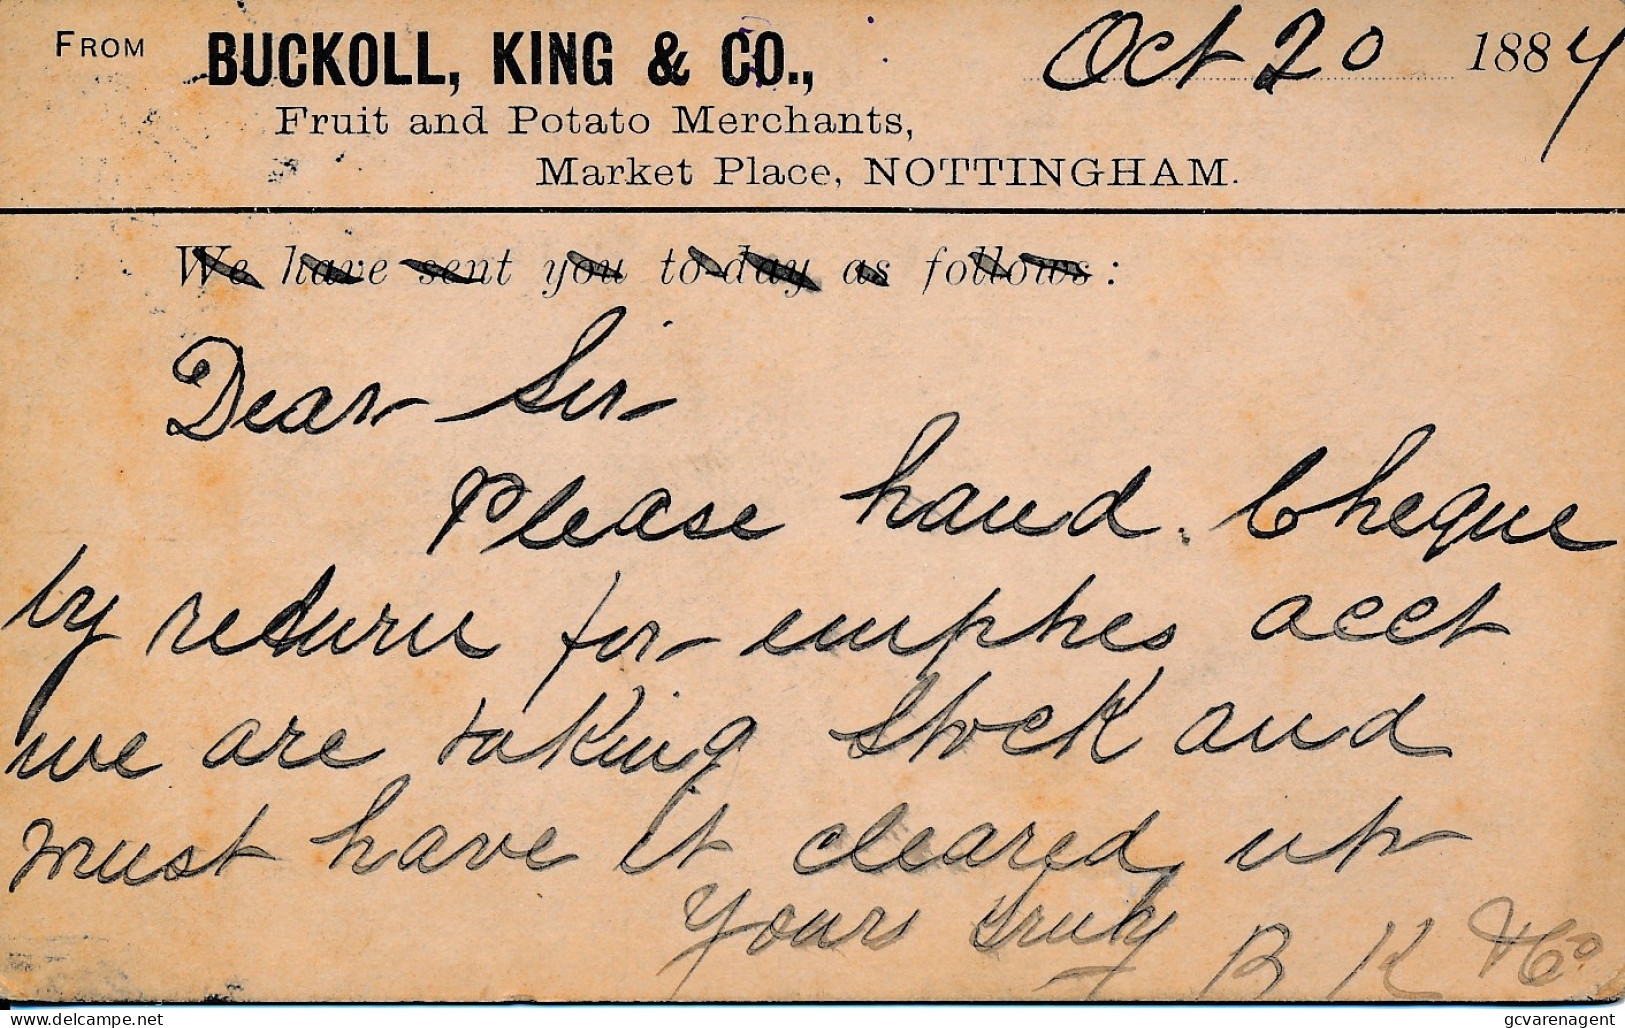 FROM BUCKOLL, KING & CO., Oct 20 1884
Fruit and Potato Merchants,
Market Place, NOTTINGHAM.
We have sent you to-day as follows:
Dear Sir
Please hand Cheque
by return for empties acct
we are taking Stock and
must have it cleared up
Yours truly B K & Co
delcampe.net
gcvarenagent